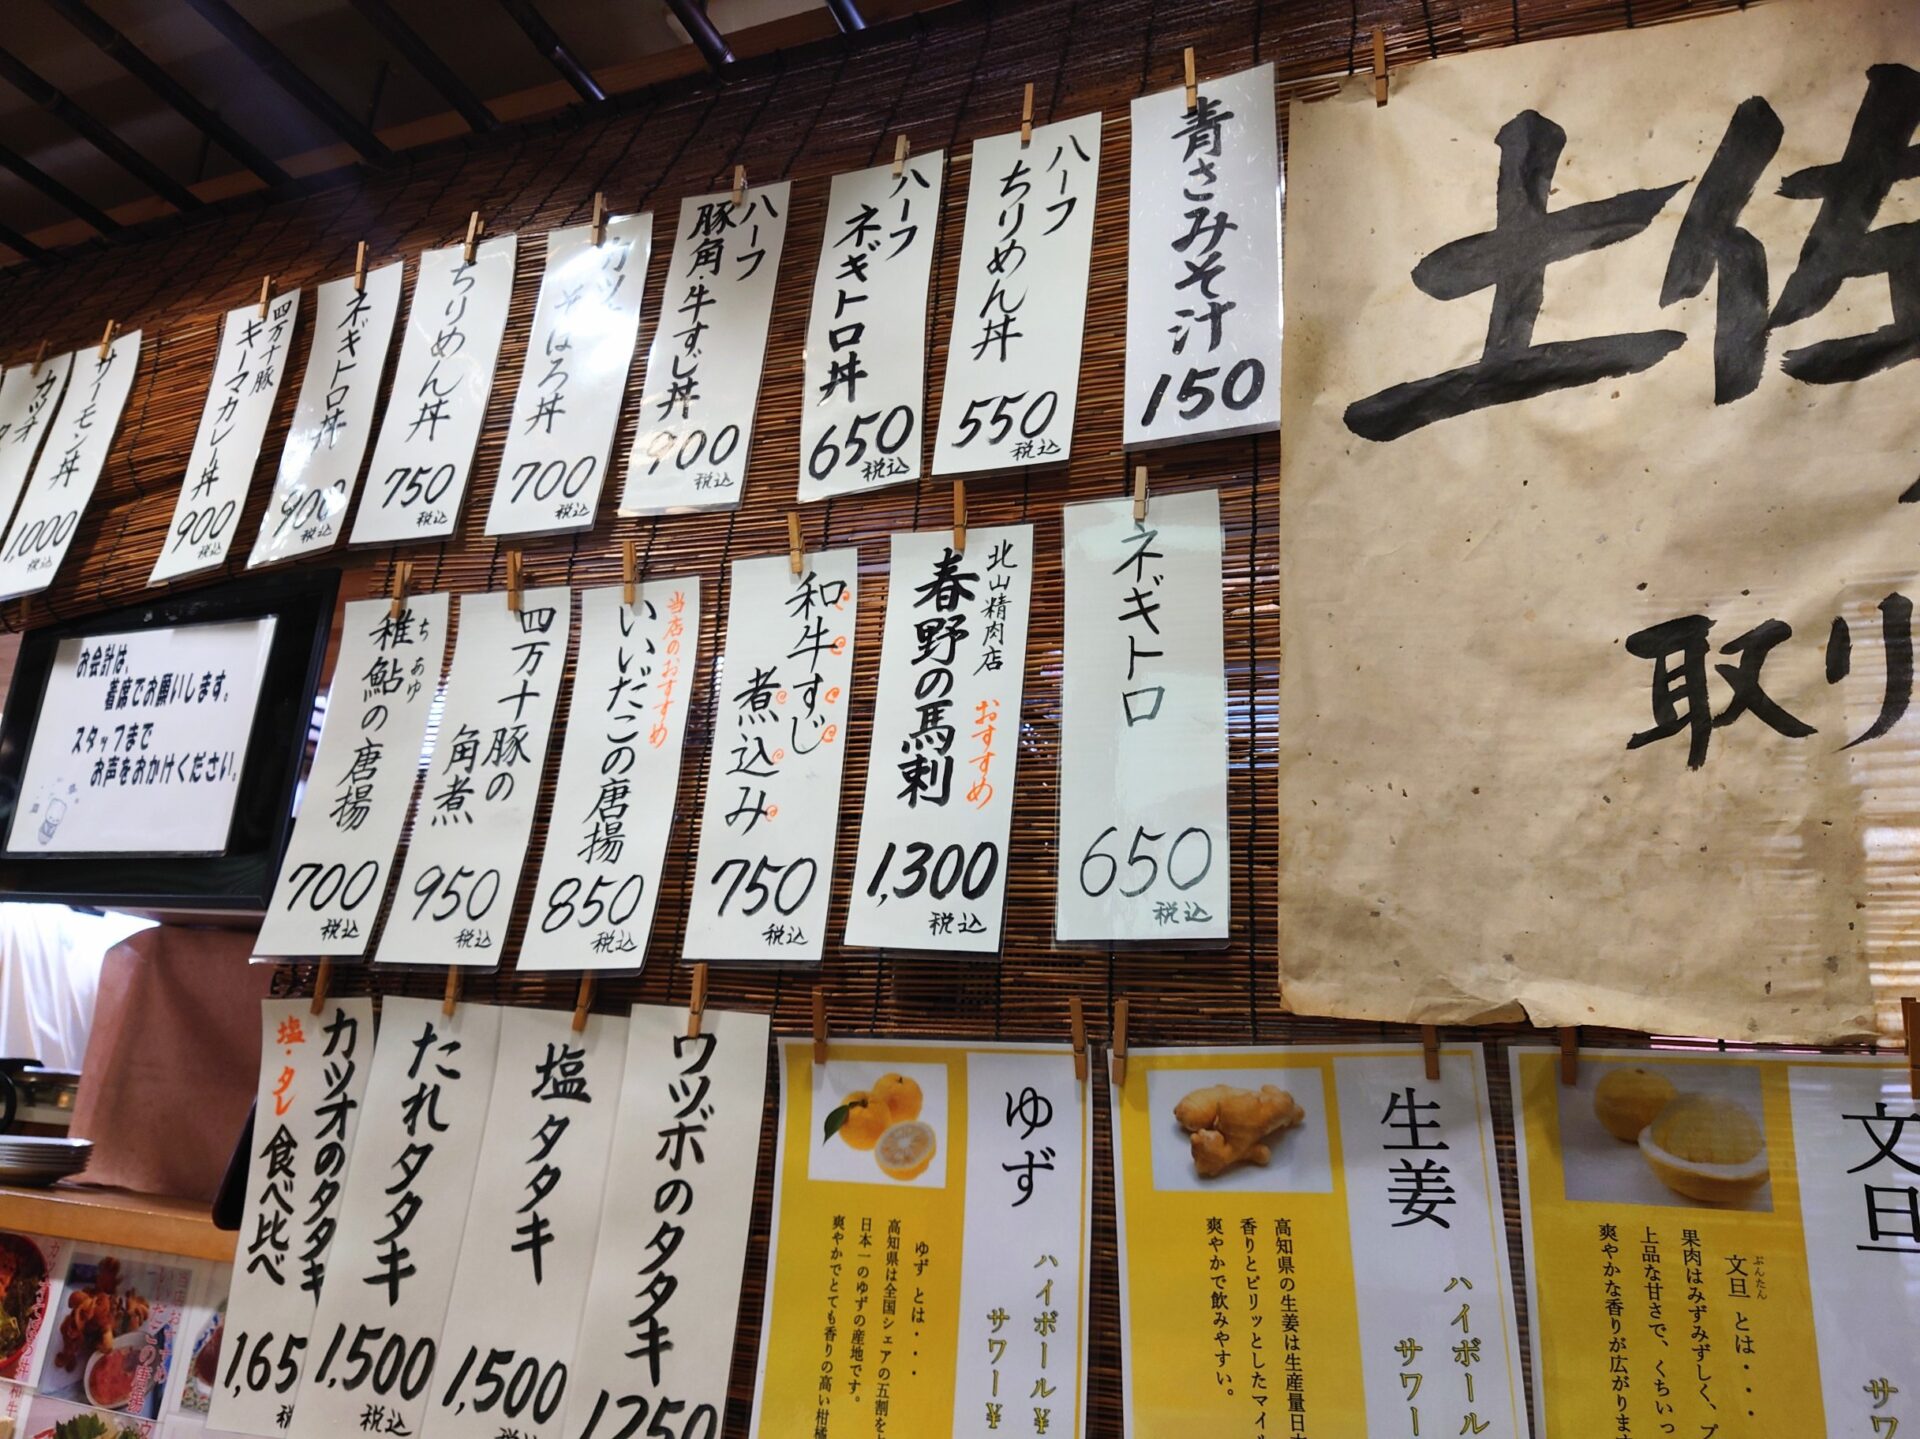 青さみそ汁
150
ハーフ
ちりめん丼
550
税込
ハーフ
ネギトロ丼
650
税込
ハーフ
豚角・牛すじ丼
900
税込
そぼろ丼
700
税込
ちりめん丼
750
税込
ネギトロ丼
900
税込
四万十豚
キーマカレー丼
900
税込
サーモン丼
1,000
税込
カツオ
土佐
取り
ネギトロ
650
税込
北山精肉店
春野の馬刺
おすすめ
1,300
税込
和牛すじ
煮込み
750
税込
当店のおすすめ
いいだこの唐揚
850
税込
四万十豚の
角煮
950
税込
稚鮎の唐揚
ち あゆ
700
税込
お会計は、
着席でお願いします。
スタッフまで
お声をおかけください。
ウツボのタタキ
1250
塩タタキ
1,500
税込
たれタタキ
1,500
税込
カツオのタタキ
塩・タレ
食べ比べ
1,65
税
ゆず
ハイボール¥
サワー¥
ゆず とは・・・
高知県は全国シェアの五割を
日本一のゆずの産地です。
爽やかでとても香りの高い柑橘
生姜
ハイボール
サワー
高知県の生姜は生産量日本
香りとピリッとしたマイル
爽やかで飲みやすい。
文旦
サワ
文旦 とは・・・
ぶんたん
果肉はみずみずしく、プ
上品な甘さで、くちいっ
爽やかな香りが広がります